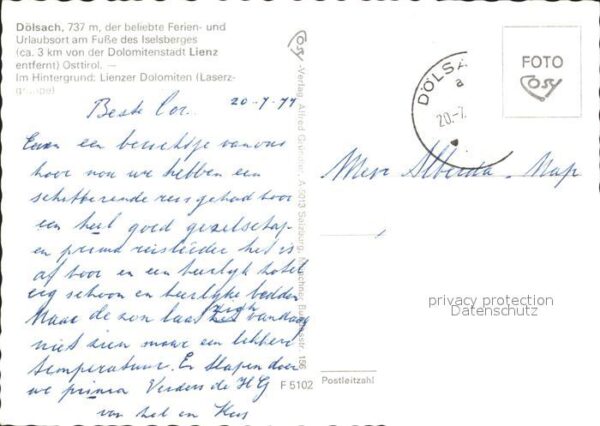 Dölsach, 737 m, der beliebte Ferien- und
Urlaubsort am Fuße des Iselsberges
(ca. 3 km von der Dolomitenstadt Lienz
entfernt) Osttirol. —
Im Hintergrund: Lienzer Dolomiten (Laserz-
gruppe)
20-7-77
Beste Cor.
Even een berichtje van ons
hoor nou we hebben een
schitterende reis gehad hoor
een heel goed gezelschap
en prima reisleider het is
af hoor en een heerlijk hotel
erg schoon en heerlijke bedden
Maar de zon laat zigh vandaag
niet zien maar een lekkere
temperatuur. En slapen doen
we prima Verders de H G
van hel en Kees
Cosy
-Verlag Alfred Gründler, A-5013 Salzburg, Münchner Bundesstr. 156
F 5102
DÖLSA
a
20.-7.
FOTO
Cosy
Mevr Alberda - Nap
privacy protection
Datenschutz
Postleitzahl